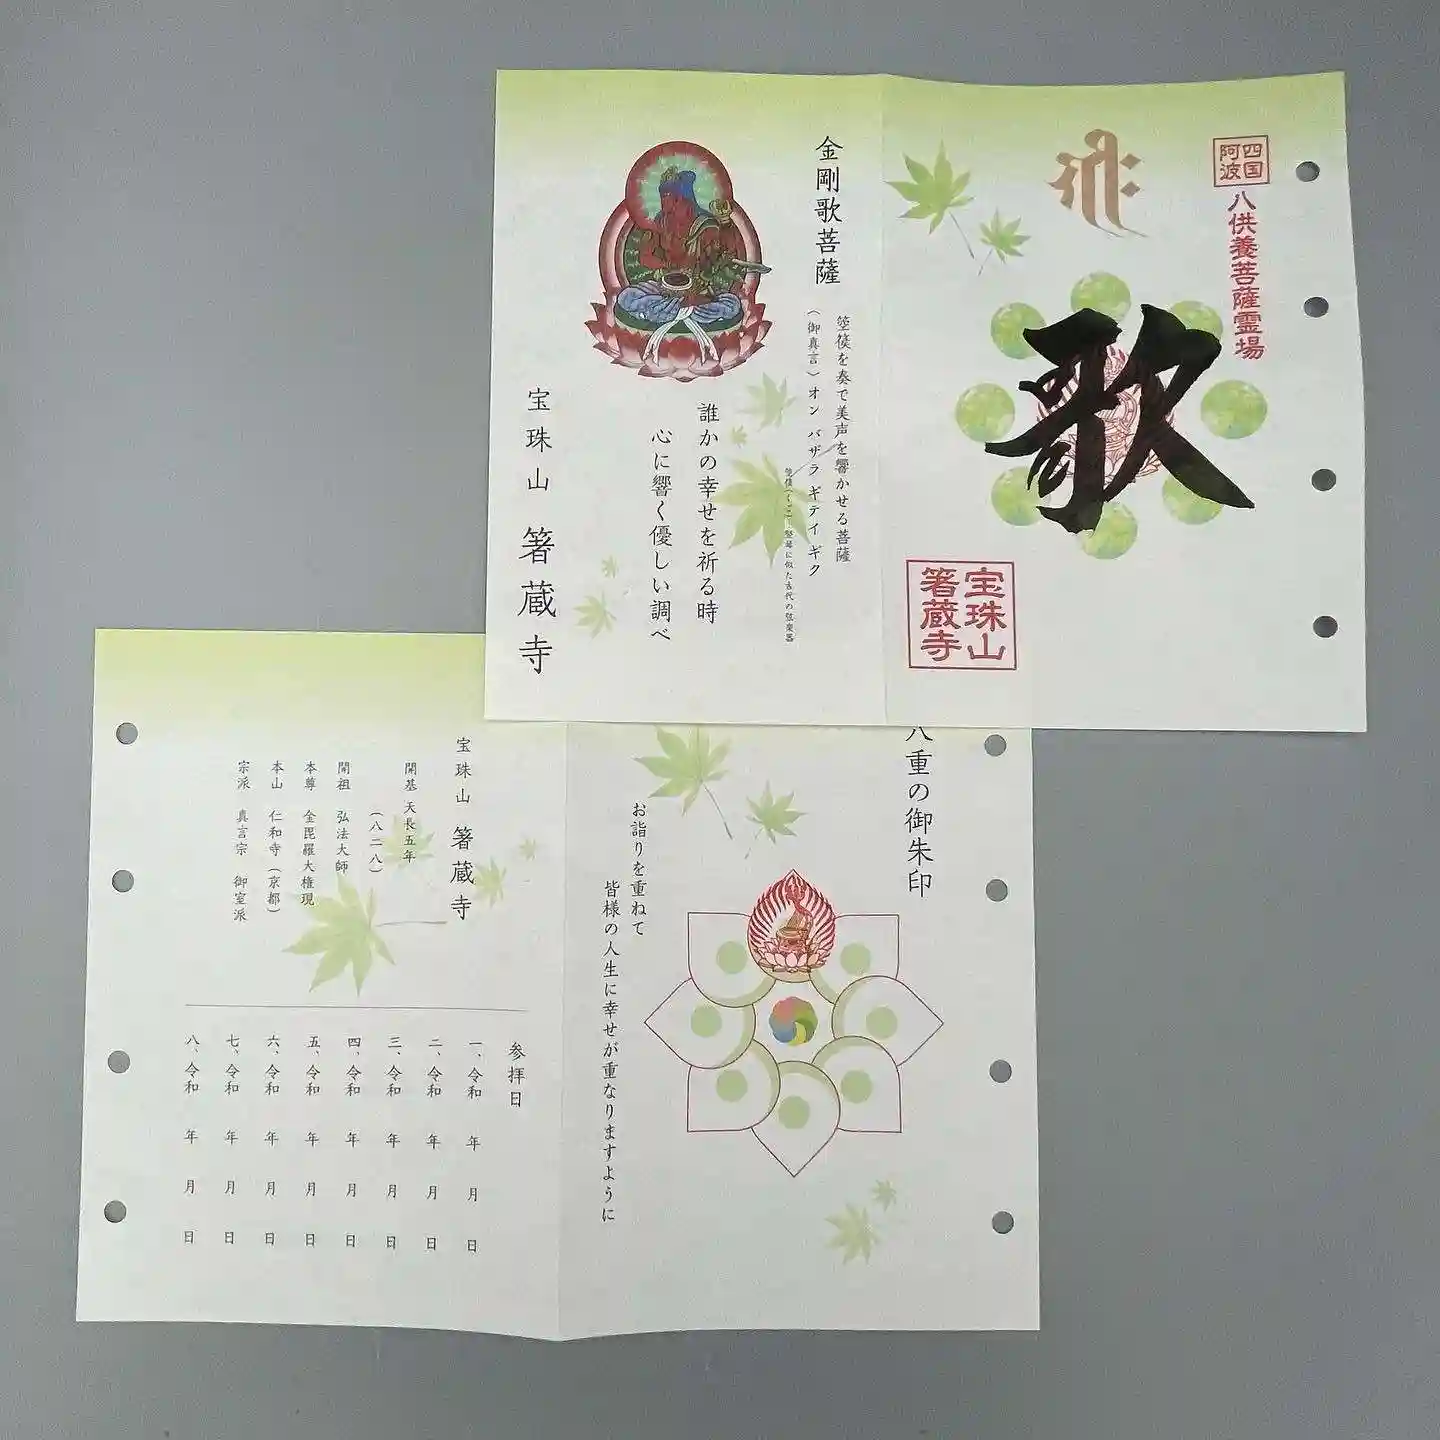 四国
阿波
八供養菩薩霊場
歌
宝珠山
箸蔵寺
金剛歌菩薩
箜篌を奏で美声を響かせる菩薩
(御真言) オン バザラ ギテイ ギク
誰かの幸せを祈る時
心に響く優しい調べ
宝珠山 箸蔵寺
八重の御朱印
お詣りを重ねて
皆様の人生に幸せが重なりますように
宝珠山 箸蔵寺
開基 天長五年
(八二八)
開祖 弘法大師
本尊 金毘羅大権現
本山 仁和寺(京都)
宗派 真言宗 御室派
参拝日
一、令和 年 月 日
二、令和 年 月 日
三、令和 年 月 日
四、令和 年 月 日
五、令和 年 月 日
六、令和 年 月 日
七、令和 年 月 日
八、令和 年 月 日